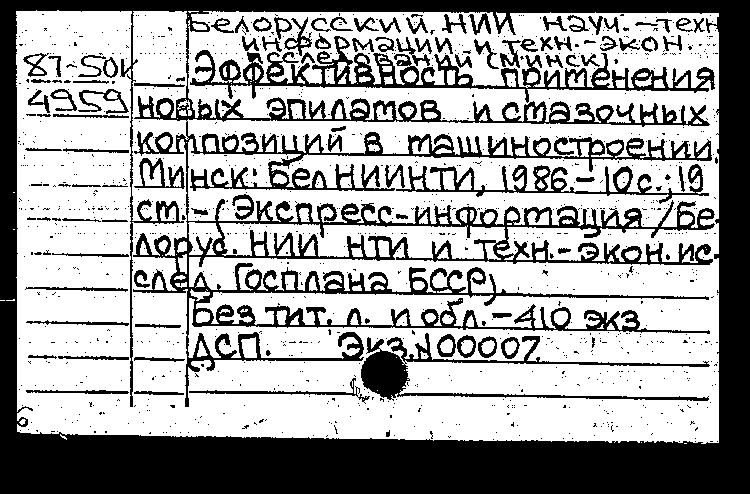 Белорусский НИИ науч.-техн
информации и техн.-экон.
исследований (Минск).
87-50к Эффективность применения
4959 новых эпиламов и смазочных
композиций в машиностроении.
Минск: БелНИИНТИ, 1986.-10с.; 19
см.-(Экспресс-информация/Бе-
лорус. НИИ НТИ и техн.-экон. ис-
след. Госплана БССР).
Без тит. л. и обл.-410 экз
ДСП. Экз.N00007.
6